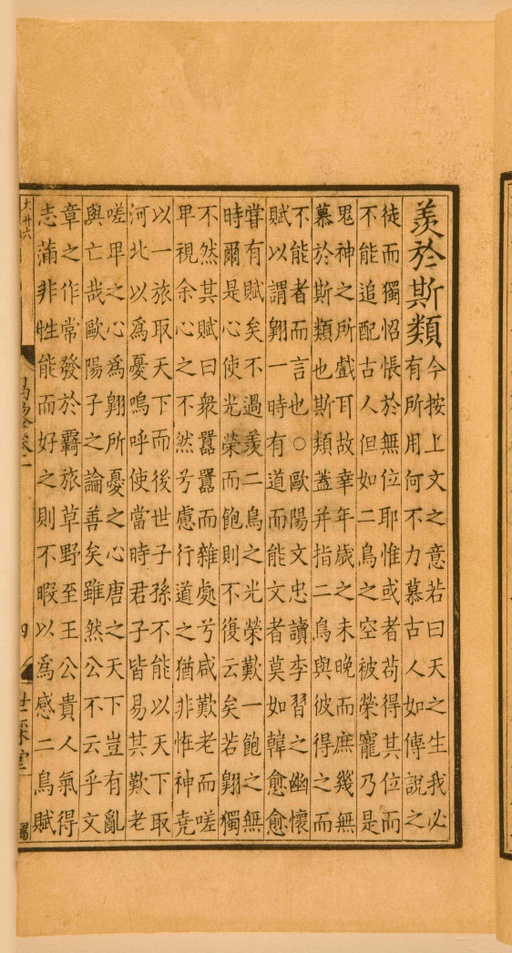 羨於斯類
今按上文之意若曰天之生我必
有所用何不力慕古人如傅說之
徒而獨怊悵於無位耶惟或者苟得其位而
不能追配古人但如二鳥之空被榮寵乃是
鬼神之所戲耳故幸年歲之未晚而庶幾無
慕於斯類也斯類蓋并指二鳥與彼得之而
不能者而言也○歐陽文忠讀李習之幽懷
賦以謂翱一時有道而能文者莫如韓愈愈
嘗有賦矣不過羨二鳥之光榮歎一飽之無
時爾是心使光榮而飽則不復云矣若翱獨
不然其賦曰衆囂囂而雜處兮咸歎老而嗟
卑視余心之不然兮慮行道之猶非怪神堯
以一旅取天下而後世子孫不能以天下取
河北以爲憂嗚呼使當時君子皆易其歎老
嗟卑之心爲翱所憂之心唐之天下豈有亂
與亡哉歐陽子之論善矣雖然公不云乎文
章之作常發於羇旅草野至王公貴人氣得
志滿非性能而好之則不暇以爲感二鳥賦
四
世綵堂